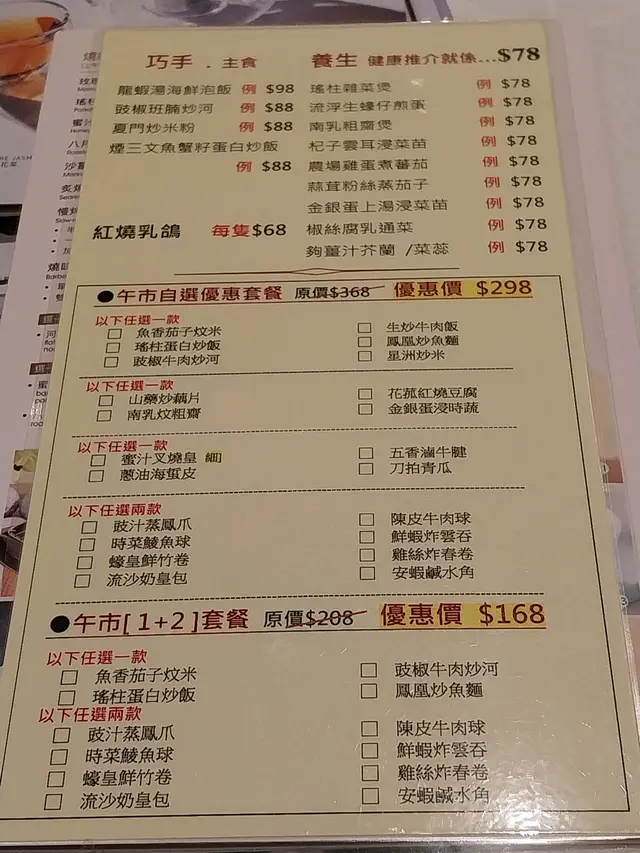 巧手 . 主食
龍蝦湯海鮮泡飯 例 $98
豉椒班腩炒河 例 $88
夏門炒米粉 例 $88
煙三文魚蟹籽蛋白炒飯
例 $88
紅燒乳鴿 每隻$68
養生 健康推介就係...$78
瑤柱雜菜煲 例 $78
流浮生蠔仔煎蛋 例 $78
南乳粗齋煲 例 $78
杞子雲耳浸菜苗 例 $78
農場雞蛋煮番茄 例 $78
蒜茸粉絲蒸茄子 例 $78
金銀蛋上湯浸菜苗 例 $78
椒絲腐乳通菜 例 $78
夠薑汁芥蘭 /菜蕊 例 $78
●午市自選優惠套餐 原價$368 優惠價 $298
以下任選一款
□ 魚香茄子炆米 □ 生炒牛肉飯
□ 瑤柱蛋白炒飯 □ 鳳凰炒魚麵
□ 豉椒牛肉炒河 □ 星洲炒米
以下任選一款
□ 山藥炒藕片 □ 花菰紅燒豆腐
□ 南乳炆粗齋 □ 金銀蛋浸時蔬
以下任選一款
□ 蜜汁叉燒皇 細 □ 五香滷牛腱
□ 蔥油海蜇皮 □ 刀拍青瓜
以下任選兩款
□ 豉汁蒸鳳爪 □ 陳皮牛肉球
□ 時菜鯪魚球 □ 鮮蝦炸雲吞
□ 蠔皇鮮竹卷 □ 雞絲炸春卷
□ 流沙奶皇包 □ 安蝦鹹水角
●午市[ 1+2 ]套餐 原價$208 優惠價 $168
以下任選一款
□ 魚香茄子炆米 □ 豉椒牛肉炒河
□ 瑤柱蛋白炒飯 □ 鳳凰炒魚麵
以下任選兩款
□ 豉汁蒸鳳爪 □ 陳皮牛肉球
□ 時菜鯪魚球 □ 鮮蝦炸雲吞
□ 蠔皇鮮竹卷 □ 雞絲炸春卷
□ 流沙奶皇包 □ 安蝦鹹水角